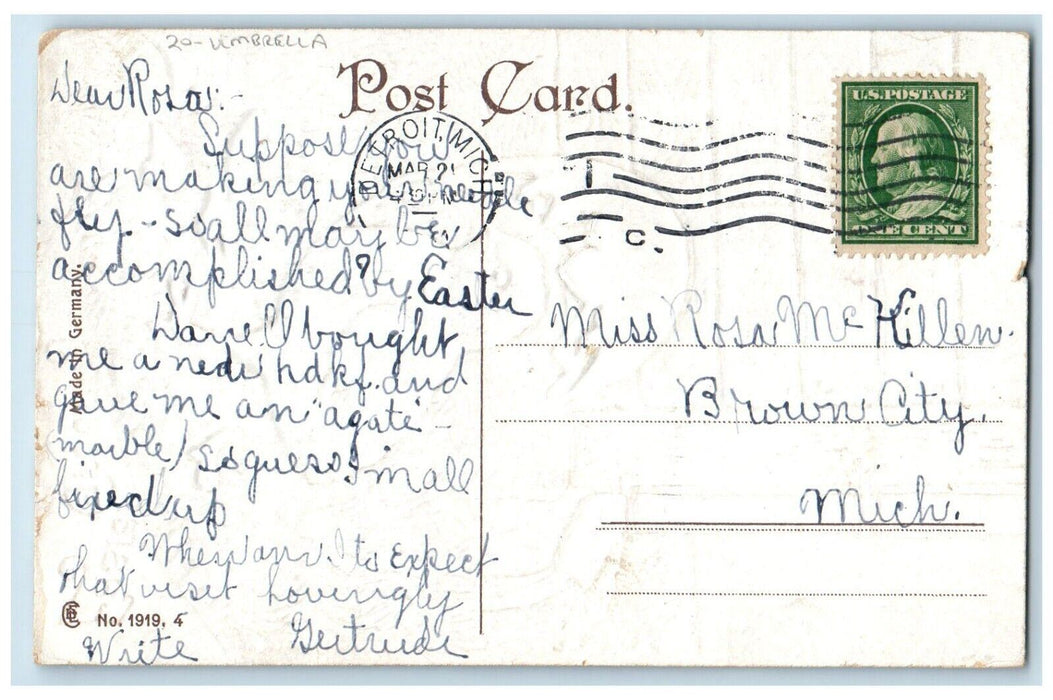 20-UMBRELLA
Post Card.
Dear Rosa:-
Suppose you
are making your needle
fly - so all may be
accomplished? by Easter
Darrell bought
me a hdkf. and
gave me an "agate -
marble) so guess I'm all
fixed up
When am I to expect
that visit Lovingly
Gertrude
Write
Made in Germany.
No. 1919. 4
DETROIT, MICH
MAR 21
C.
U.S. POSTAGE
ONE CENT
Miss Rosa McKillen.
Brown City.
Mich.